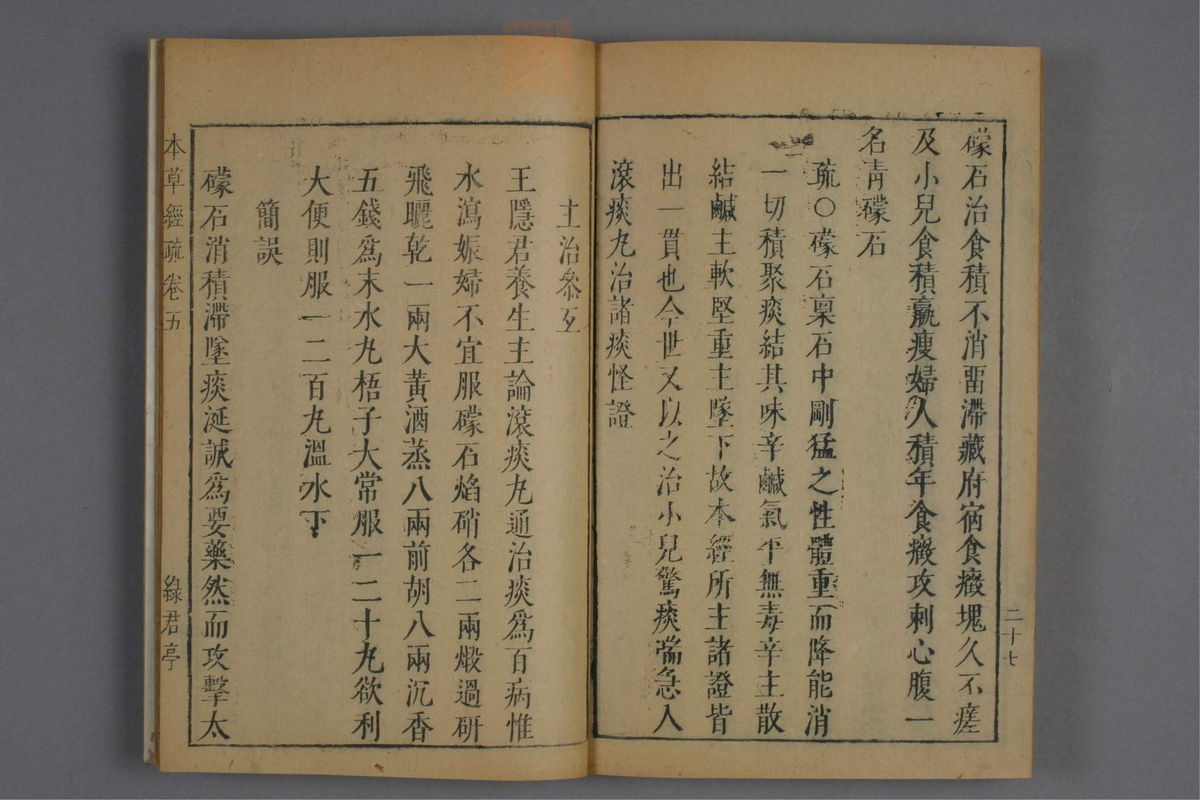 礞石治食積不消畱滯藏府宿食癥塊久不瘥
及小兒食積羸瘦婦人積年食癥攻刺心腹一
名青礞石
疏○礞石稟石中剛猛之性體重而降能消
一切積聚痰結其味辛鹹氣平無毒辛主散
結鹹主軟堅重主墜下故本經所主諸證皆
出一貫也今世又以之治小兒驚痰喘急入
滾痰丸治諸痰怪證
二十七
主治叅互
王隱君養生主論滾痰丸通治痰爲百病惟
水瀉娠婦不宜服礞石焰硝各二兩煅過研
飛曬乾一兩大黃酒蒸八兩前胡八兩沉香
五錢爲末水丸梧子大常服一二十丸欲利
大便則服一二百丸溫水下
簡誤
礞石消積滯墜痰涎誠爲要藥然而攻擊太
本草經疏卷五
綠君亭